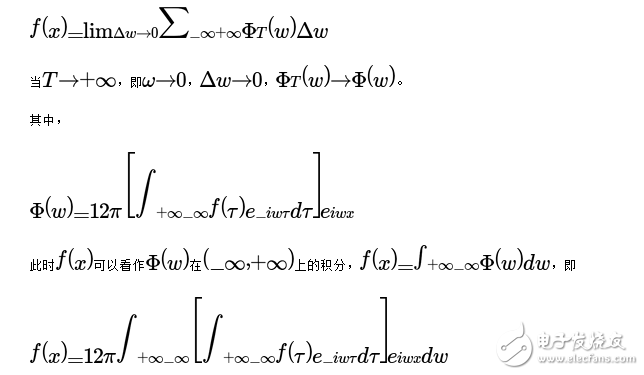 f(x)=limΔw→0∑−∞+∞ΦT(w)Δw
当T→+∞，即ω→0，Δw→0，ΦT(w)→Φ(w)。
其中，
Φ(w)=12π[∫+∞−∞f(τ)e−iwτdτ]eiwx
此时f(x)可以看作Φ(w)在(−∞,+∞)上的积分，f(x)=∫+∞−∞Φ(w)dw，即
f(x)=12π∫+∞−∞[∫+∞−∞f(τ)e−iwτdτ]eiwxdw
电子发烧友
www.elecfans.com